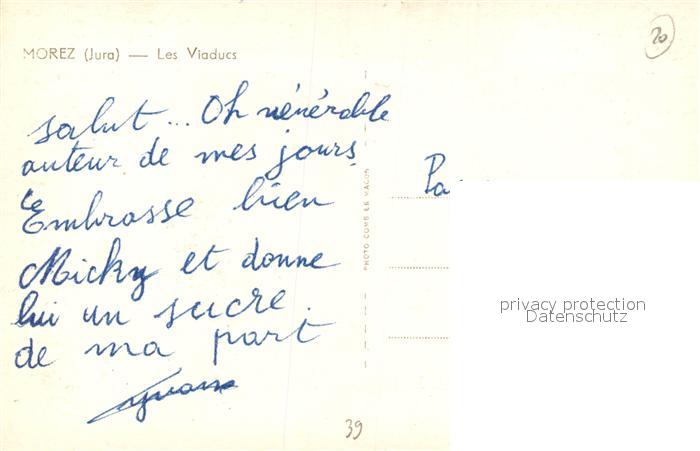 MOREZ (Jura) — Les Viaducs
20
salut... Oh vénérable
auteur de mes jours.
Embrasse bien
Micky et donne
lui un sucre.
de ma part
Pa
PHOTO COMB LE MACON
privacy protection
Datenschutz
39